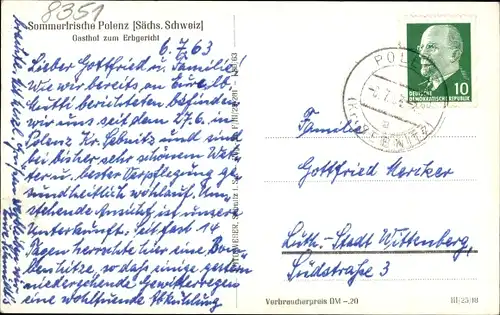 8351
Sommerfrische Polenz [Sächs. Schweiz]
Gasthof zum Erbgericht
6.7.63
Lieber Gottfried u. Familie!
Wie wir bereits an
Mutti berichteten befinden
wir uns seit dem 27.6. in
Polenz Kr. Sebnitz und
bei bisher sehr schönem Wet-
ter u. bester Verpflegung ge-
sundheitlich wohlauf. Um-
stehende Ansicht ist unsere
Unterkunft. Seit fast 14
Tagen herrschte hier eine
hitze, so daß einige gestern
niedergehende Gewitterregen
eine wohltuende Abkühlung
DEUTSCHE
DEMOKRATISCHE REPUBLIK
10
POLENZ
Familie
Gottfried Meriker
Luth.-Stadt Wittenberg,
Südstraße 3
Verbraucherpreis DM -.20
III/25/18